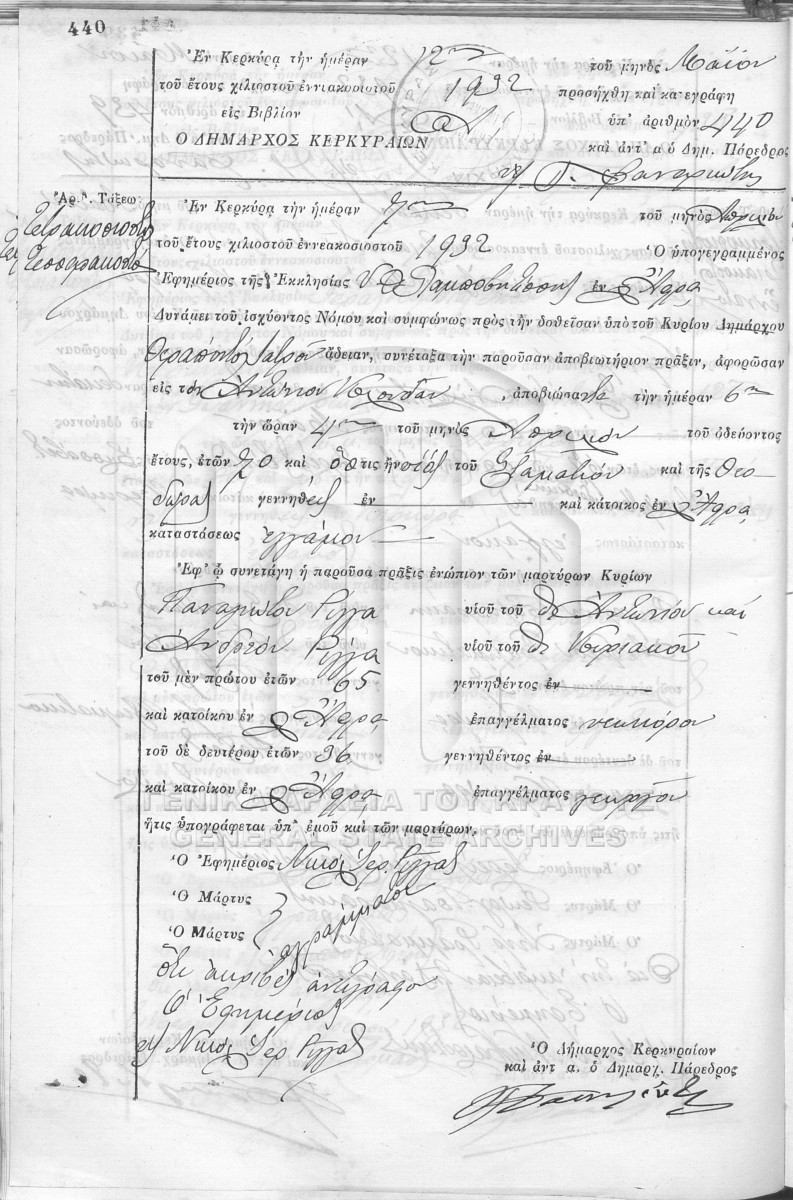 440
Ἐν Κερκύρᾳ τὴν ἡμέραν 12ην τοῦ μηνὸς Μαΐου
τοῦ ἔτους χιλιοστοῦ ἐννιακοσιοστοῦ 1932 προσήχθη καὶ κατεγράφη
εἰς Βιβλίον Α ὑπ' ἀριθμὸν 440
Ο ΔΗΜΑΡΧΟΣ ΚΕΡΚΥΡΑΙΩΝ καὶ ἀντ' α ὁ Δημ. Πάρεδρος
Ἀρ. Τάξεω
τετρακοσιοστὴ
τεσσαρακοστὴ
Ἐν Κερκύρᾳ τὴν ἡμέραν 7ην τοῦ μηνὸς Ἀπριλίου
τοῦ ἔτους χιλιοστοῦ ἐννεακοσιοστοῦ 1932 Ὁ ὑπογεγραμμένος
Ἐφημέριος τῆς Ἐκκλησίας ἐν Ἄφρᾳ
Δυνάμει τοῦ ἰσχύοντος Νόμου καὶ συμφώνως πρὸς τὴν δοθεῖσαν ὑπὸ τοῦ Κυρίου Δημάρχου
θεράποντος ἰατροῦ ἄδειαν, συνέταξα τὴν παροῦσαν ἀποβιωτήριον πρᾶξιν, ἀφορῶσαν
εἰς τὸν Ἀντώνιον ἀποβιώσαντα τὴν ἡμέραν 6ην
τὴν ὥραν 4ην τοῦ μηνὸς Ἀπριλίου τοῦ ὁδεύοντος
ἔτους, ἐτῶν 70 καὶ ὅστις ἦν υἱὸς τοῦ Σταματίου καὶ τῆς Θεο
δώρας γεννηθεὶς ἐν καὶ κάτοικος ἐν Ἄφρᾳ
καταστάσεως ἐγγάμου
Ἐφ' ᾧ συνετάγη ἡ παροῦσα πρᾶξις ἐνώπιον τῶν μαρτύρων Κυρίων
Παναγιώτου Ρίγγα υἱοῦ τοῦ Ἀντωνίου καὶ
Ἀνδρέου Ρίγγα υἱοῦ τοῦ Κυριακοῦ
τοῦ μὲν πρώτου ἐτῶν 65 γεννηθέντος ἐν
καὶ κατοίκου ἐν Ἄφρᾳ ἐπαγγέλματος νεωκόρου
τοῦ δὲ δευτέρου ἐτῶν 36 γεννηθέντος ἐν
καὶ κατοίκου ἐν Ἄφρᾳ ἐπαγγέλματος γεωργοῦ
ΓΕΝΙΚΑ ΑΡΧΕΙΑ ΤΟΥ ΚΡΑΤΟΥΣ
ἥτις ὑπογράφεται ὑπ' ἐμοῦ καὶ τῶν μαρτύρων.
GENERAL STATE ARCHIVES
Ὁ Ἐφημέριος Νικόλ. Ἱερ. Ρίγγας
Ὁ Μάρτυς
Ὁ Μάρτυς ἀγράμματοι
ὅτι ἀκριβὲς ἀντίγραφον
Ὁ Ἐφημέριος
Νικόλ. Ἱερ. Ρίγγας
Ὁ Δήμαρχος Κερκυραίων
καὶ ἀντ α. ὁ Δημαρχ. Πάρεδρος